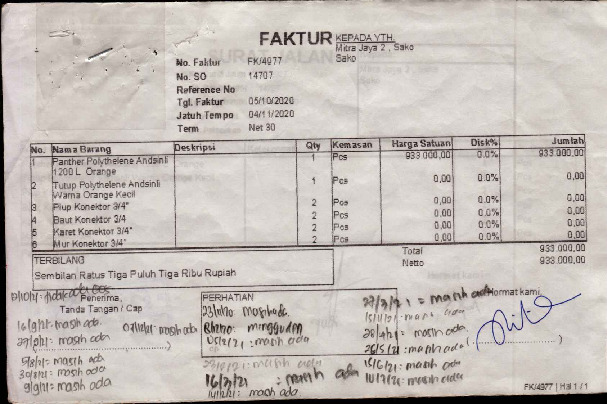 FAKTUR
KEPADA YTH.
Mitra Jaya 2 , Sako
Sako
No. Faktur FK/4977
No. SO 14707
Reference No
Tgl. Faktur 05/10/2020
Jatuh Tempo 04/11/2020
Term Net 30
No. Nama Barang Deskripsi Qty Kemasan Harga Satuan Disk% Jumlah
1 Panther Polythelene Andsinli 1 Pcs 933.000,00 0.0% 933.000,00
1200 L Orange
2 Tutup Polythelene Andsinli 1 Pcs 0,00 0.0% 0,00
Warna Orange Kecil
3 Plup Konektor 3/4" 2 Pcs 0,00 0.0% 0,00
4 Baut Konektor 3/4 2 Pcs 0,00 0.0% 0,00
5 Karet Konektor 3/4" 2 Pcs 0,00 0.0% 0,00
6 Mur Konektor 3/4" 2 Pcs 0,00 0.0% 0,00
Total 933.000,00
Netto 933.000,00
TERBILANG
Sembilan Ratus Tiga Puluh Tiga Ribu Rupiah
Penerima,
Tanda Tangan / Cap
16/8/21: masih ada
masih ada
masih ada
5/8/21: masih ada
masih ada
9/9/21: masih ada
PERHATIAN
masih ada
minggu dpn
masih ada
16/3/21: masih ada
masih ada
27/3/21: masih ada
masih ada
28/4/21: masih ada
26/5/21: masih ada
15/6/21: masih ada
masih ada
Hormat kami,
FK/4977 | Hal 1 / 1